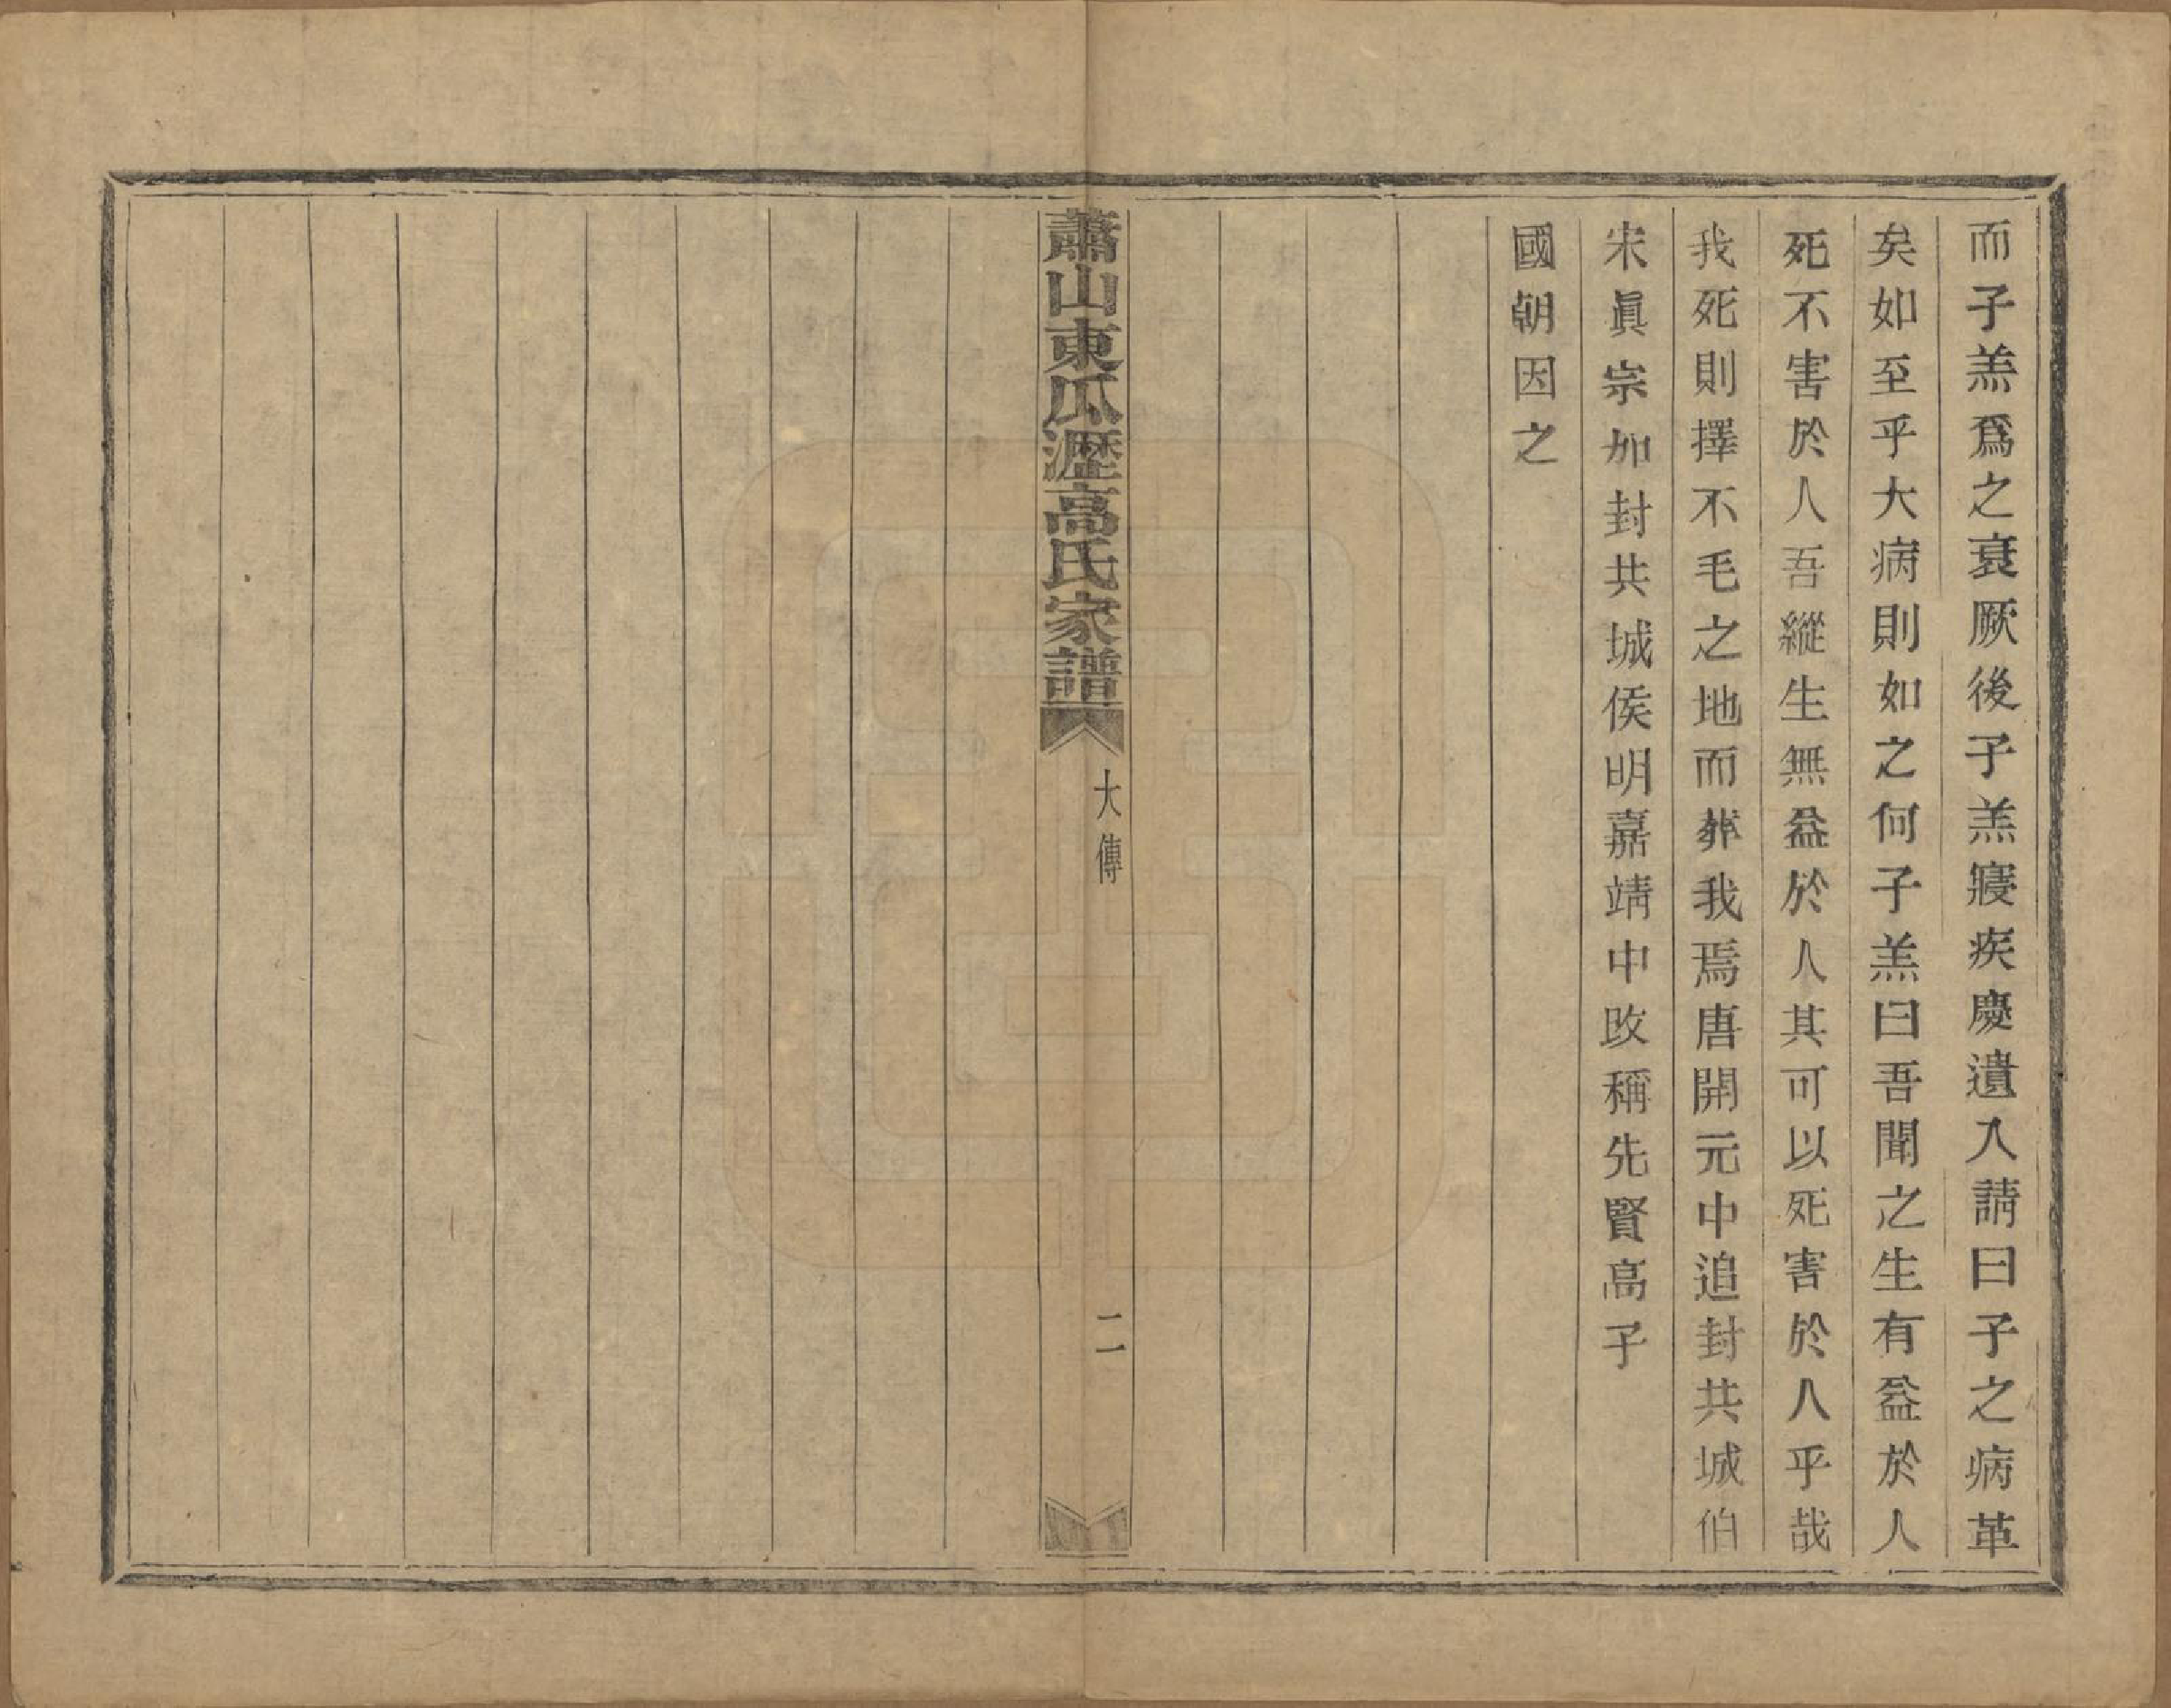 而子羔爲之衰厥後子羔寢疾慶遺入請曰子之病革
矣如至乎大病則如之何子羔曰吾聞之生有益於人
死不害於人吾縱生無益於人其可以死害於人乎哉
我死則擇不毛之地而葬我焉唐開元中追封共城伯
宋眞宗加封共城侯明嘉靖中改稱先賢高子
國朝因之
蕭山東瓜瀝高氏家譜 大傳 二